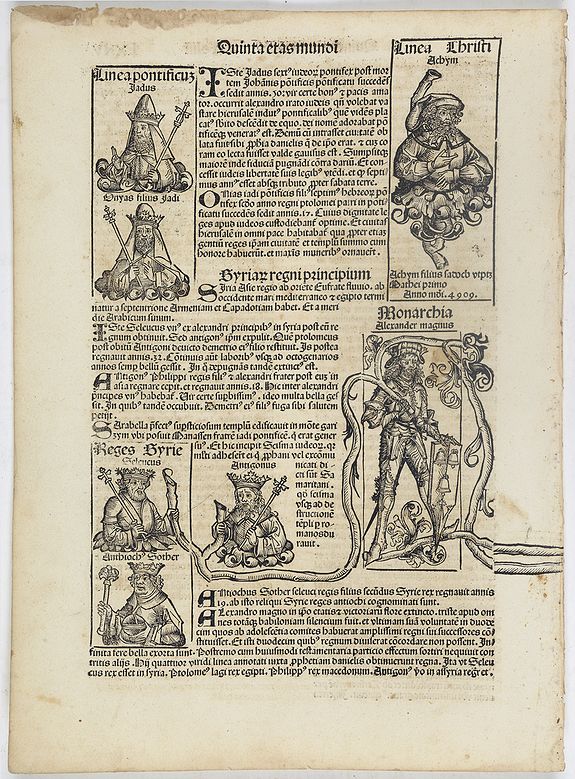 Quinta etas mundi
Linea pontificuz
Jadus
Onyas filius Jadi
ISte Jadus sext⁹ iudeoꝝ pontifex post mor
tem Johānis pōtificis pōtificatu succedēs
sedit annis .30. vir certe bon⁹ ⁊ pacis ama
tor. occurrit alexandro irato iudeis qn̄ volebat va
stare hierusalē indut⁹ pontificalib⁹ quē vidēs pla
cat⁹ s̄bito descēdit de equo. dei nomē adorabat pō
tificēqꝫ venerat⁹ est. Demū cū intrasset ciuitatē ob
lata fuit sibi ꝓphīa danielis q̄ de ip̄o erat. ⁊ cuz co
ram eo lecta fuisset valde gauisus est. Sumpsitqꝫ
maiorē inde fiduciā pugnādi cōtra dariū. Et con
cessit iudeis libertate suis legib⁹ vtēdi. et q̄ septi
mus ann⁹ esset absqꝫ tributo ꝓpter sabata terre.
ONias iadi pōtificis fili⁹ septim⁹ hebreoꝝ pō
tifex sedo anno regni ptolomei patri in pōti
ficatu succedēs sedit annis .17. Cuius dignitate le
ges apud iudeos custodiebant optime. Et ciuitas
hierusalē in omni pace habitabat qua ꝓpter etiaꝫ
gentiū reges ip̄am ciuitatē et templū summo cum
honore habuerūt. et maxis munerib⁹ ornauert.
Linea Christi
Achym
Achym filius sadoch vtptꝫ
Mathei primo
Anno mōi. 4909.
Syriaꝝ regni principium
SIria Asie regio ab oriēte Eufrate fluuio. ab
occidente mari mediterraneo ⁊ egipto termi
natur a septentrione Armeniam et Capadotiam habet. Et a meri
die Arabicum sinum.
ISte Seleucus vn⁹ ex alexandri principib⁹ in syria post eū re
gnum obtinuit. Sed antigon⁹ ipm expulit. Que ptolomeus
post obitū Antigoni deuicto demetrio ei⁹ filio restituit. Is postea
regnauit annis .32. Cōtinuis aut̄ laborib⁹ vsqꝫ ad octogenarios
annos semp̄ bellū gessit. In q̄ expugnās tandē extinct⁹ est.
ANtigon⁹ Philippi regis fili⁹ ⁊ alexandri frater post euꝫ in
asia regnare cepit. et regnauit annis .18. Hic inter alexandri
prīcipes vn⁹ habebat. Vir certe supbissim⁹. ideo multa bella ges
sit. In quib⁹ tandē occubuit. Demetri⁹ ei⁹ fili⁹ fuga sibi salutem
petijt.
SArabella p̄fect⁹ supsticiosum templū edificauit in mōte gari
zym vbi posuit Manassen fratrē iadi pontificē. q̄ erat gener
su⁹. Et hic incipit Scisma iudeoꝝ. qꝛ
misti adheserūt ei q̄ ꝓphani vel excomu
nicati di
cti sūt Sa
maritani.
qd̄ scisma
vsqꝫ ad de
structionē
tēpli p̄ ro
manos du
rauit.
Monarchia
Alexander magnus
Reges Syrie
Seleucus
Antigonus
Anthioch⁹ Sother
ANtiochus Sother seleuci regis filius secūdus Syrie rex regnauit annis
19. ab isto reliqui Syrie reges antiochi cognominati sunt.
ALexandro magno in ip̄o etatis ⁊ victoriarū flore extincto. triste apud om
nes totaqꝫ babiloniam silencium fuit. et vltimam suā voluntatē in duode
cim quos ab adolescētia comites habuerat amplissimi regni sui successores cō
stituisset. Et isti duodecim quib⁹ regnum diuiserat cōcordare non possent. In
finita fere bella exorta sunt. Postremo cum huiusmodi testamentaria particio effectum sortiri nequiuit con
tritis alijs. Hij quattuor viridi linea annotati iuxta ꝓphetiam danielis obtinuerūt regna. Ita vt Seleu
cus rex esset in syria. Ptolome⁹ lagi rex egipti. Philipp⁹ rex macedonum. Antigon⁹ v̄o in assyria regret.